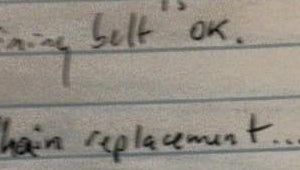 ining belt is OK.
hain replacement...